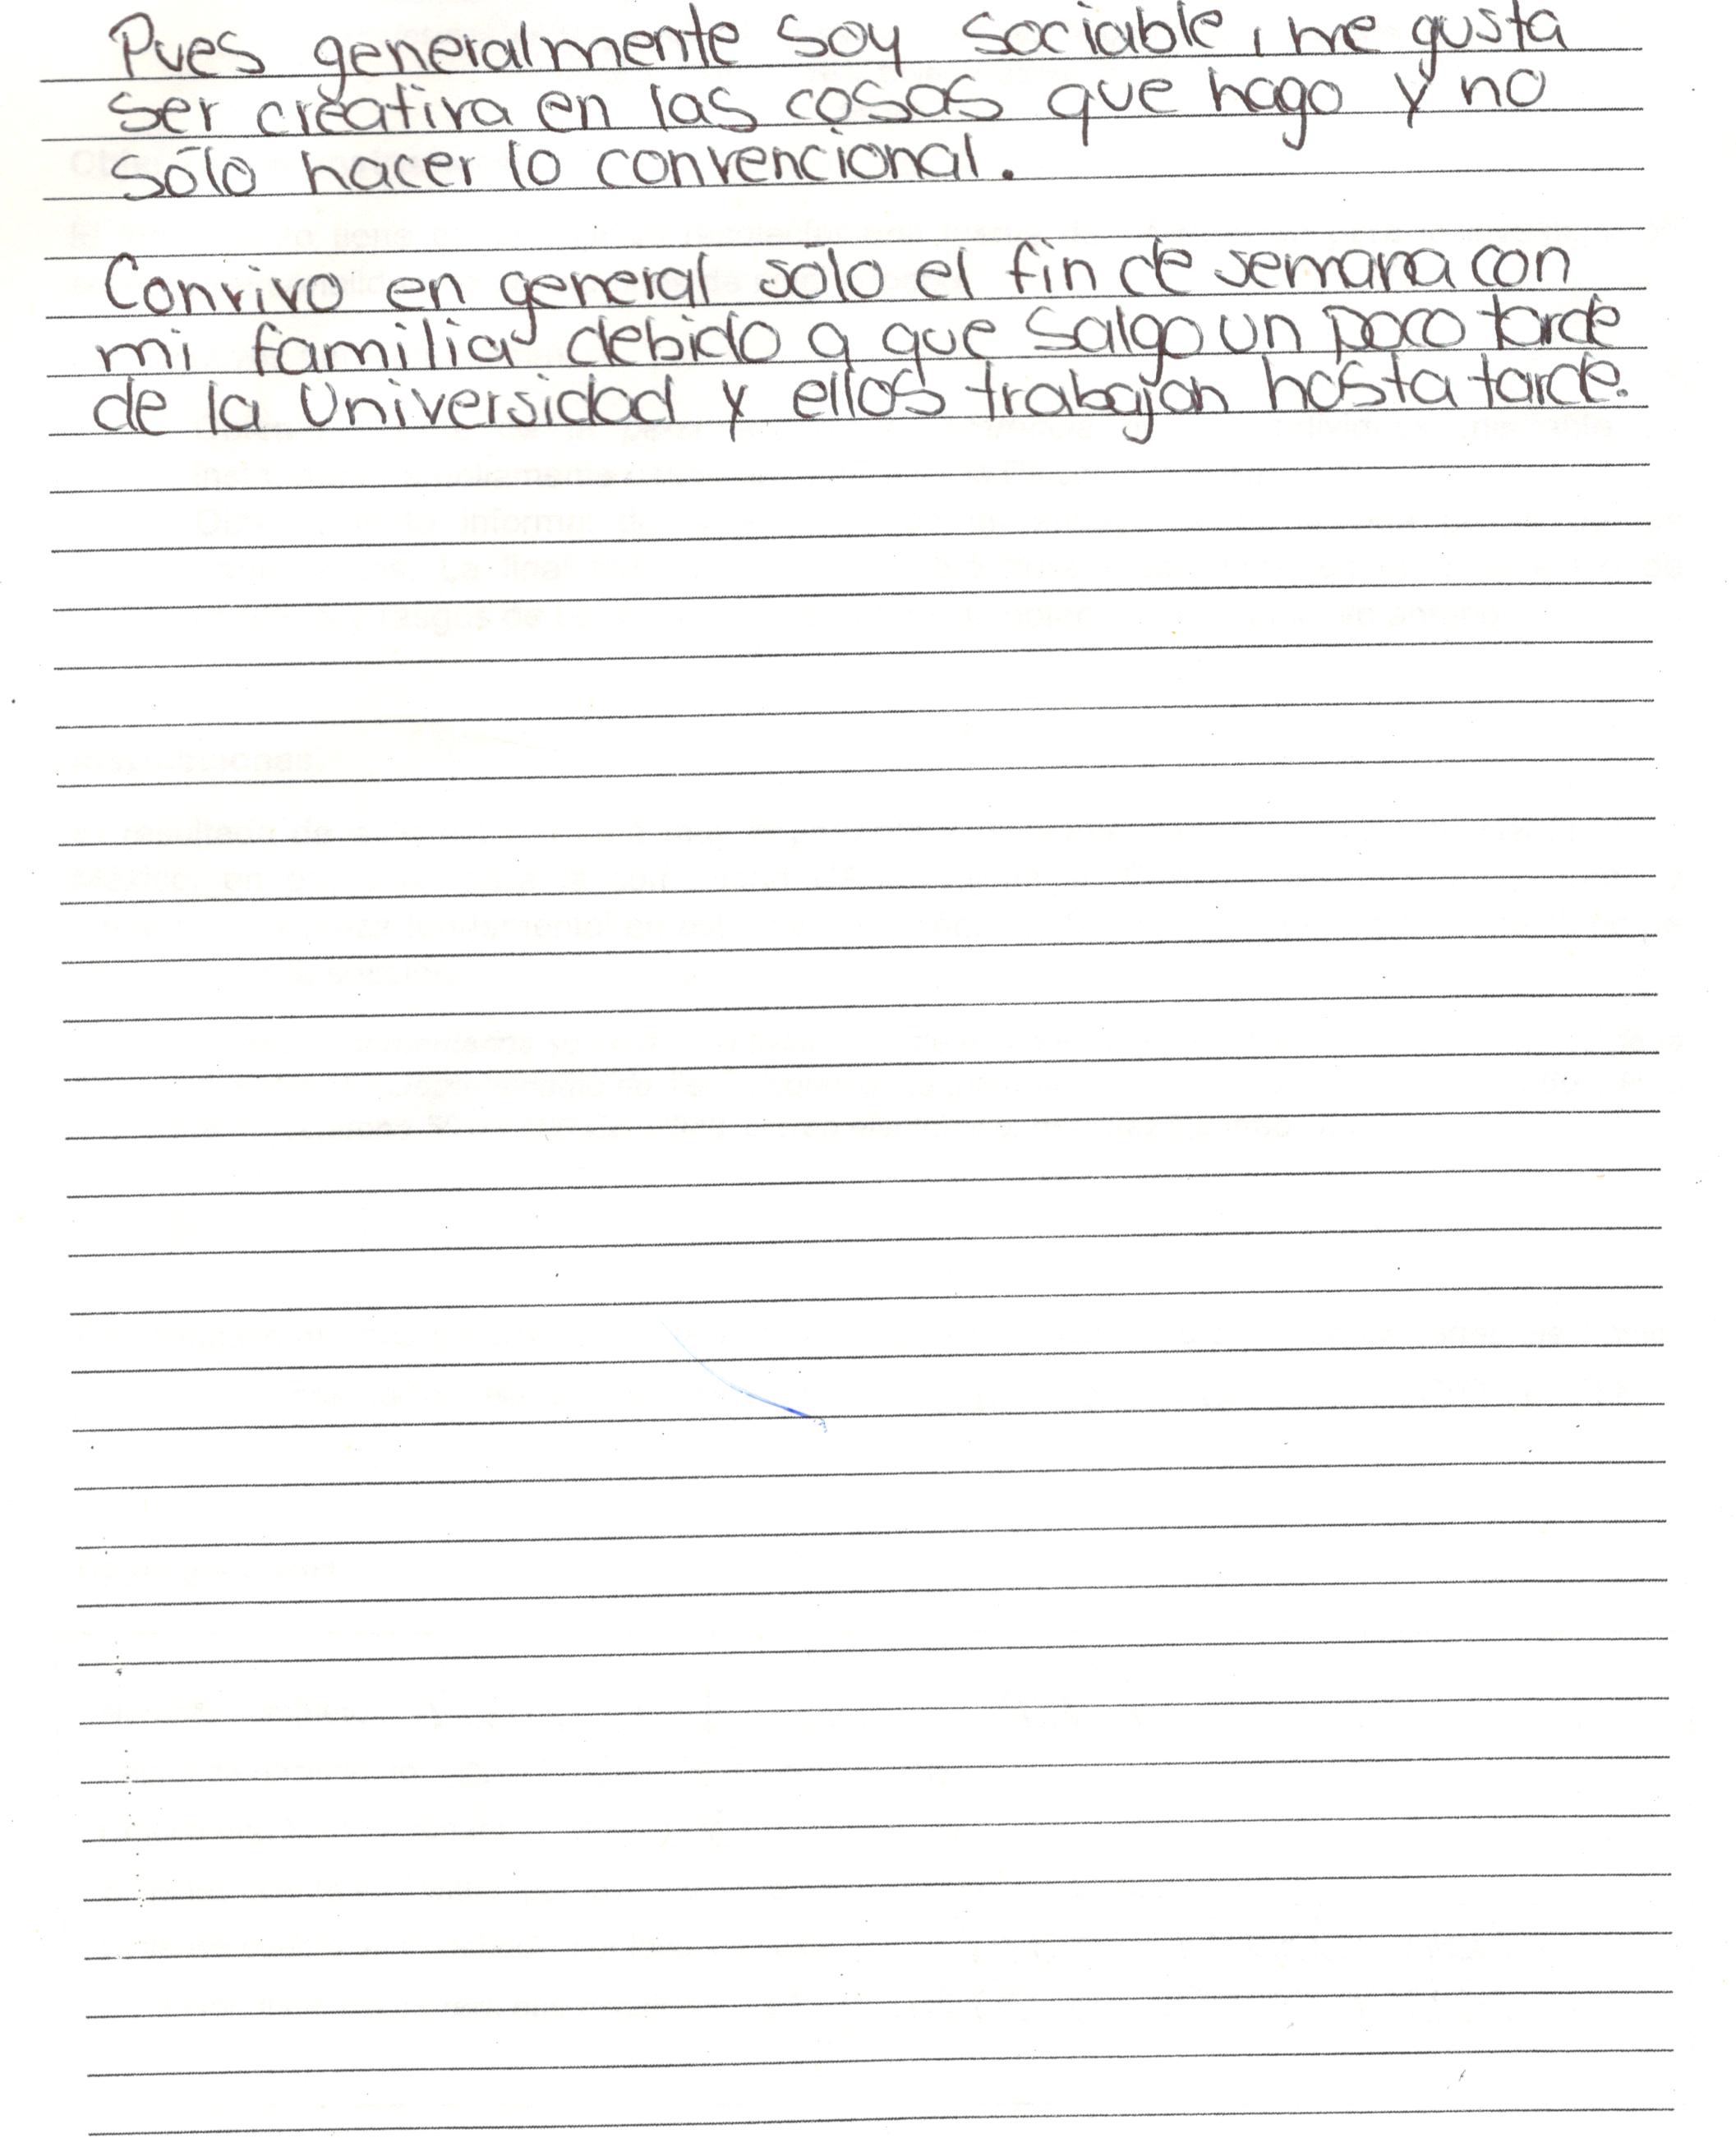 Pues generalmente soy sociable, me gusta
ser creativa en las cosas que hago y no
sólo hacer lo convencional.
Convivo en general sólo el fin de semana con
mi familia debido a que salgo un poco tarde
de la Universidad y ellos trabajan hasta tarde.